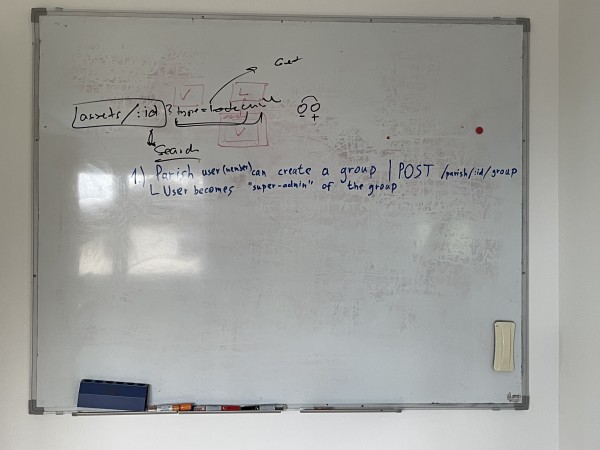 Get
assets/:id ? type=
Search
1) Parish user (member) can create a group | POST /parish/:id/group
User becomes "super-admin" of the group